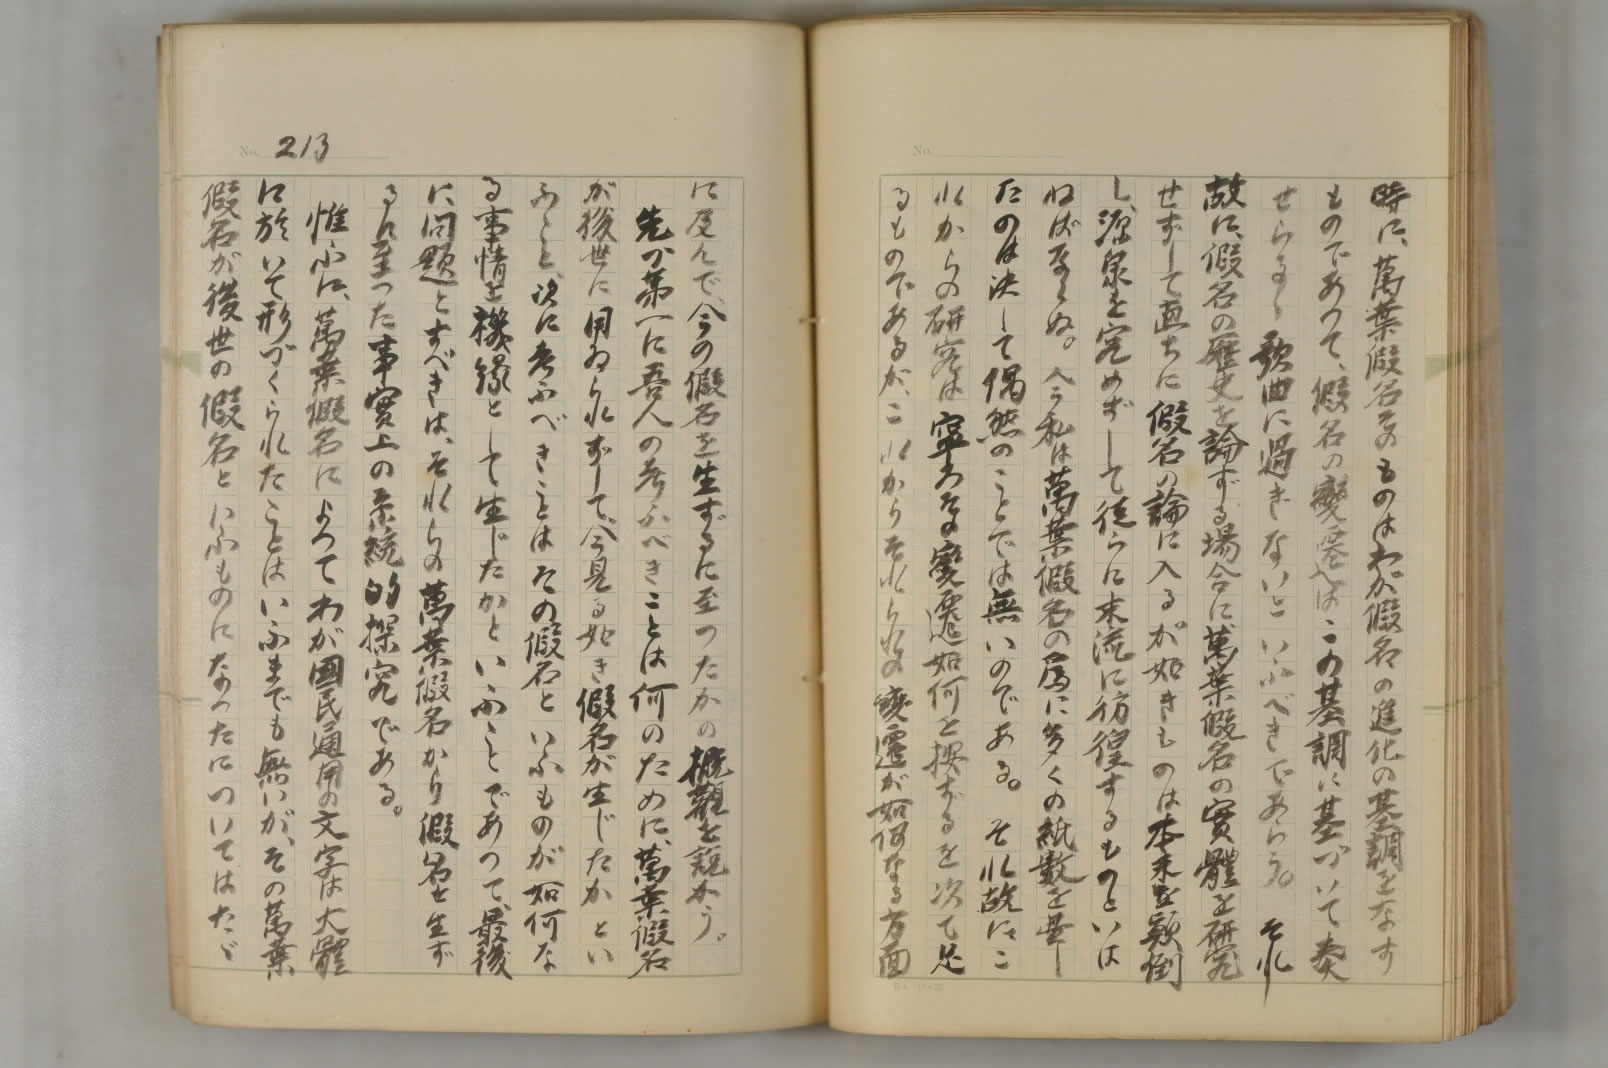 時に、萬葉假名そのものはわが假名の進化の基調をなす
ものであつて、假名の變遷はこの基調に基づいて奏
せらるゝ歌曲に過ぎないといふべきであらう。それ
故に、假名の歷史を論ずる場合に、萬葉假名の實體を研究
せずして直ちに假名の論に入るが如きものは本末を顚倒
し、源泉を究めずして徒らに末流に彷徨するものといは
ねばならぬ。今私は萬葉假名の爲に多くの紙數を費し
たのは決して偶然のことでは無いのである。それ故にこ
れからの研究は寧ろその變遷如何と按ずるを次て足
るものであるが、これからそれらの變遷が如何なる方面
No. 213
に及んで、今の假名を生ずるに至つたかの概觀を說かう。
先づ第一に吾人の考ふべきことは何のために、萬葉假名
が後世に用ゐられずして、今見る如き假名が生じたかとい
ふこと、次に考ふべきことはその假名といふものが如何な
る事情を機緣として生じたかといふことであつて、最後
に問題とすべきは、それらの萬葉假名から假名を生ず
るに至つた事實上の系統的探究である。
惟ふに、萬葉假名によつてわが國民通用の文字は大體
に於いて形づくられたことはいふまでも無いが、その萬葉
假名が後世の假名といふものになつたについてはたゞ
No.